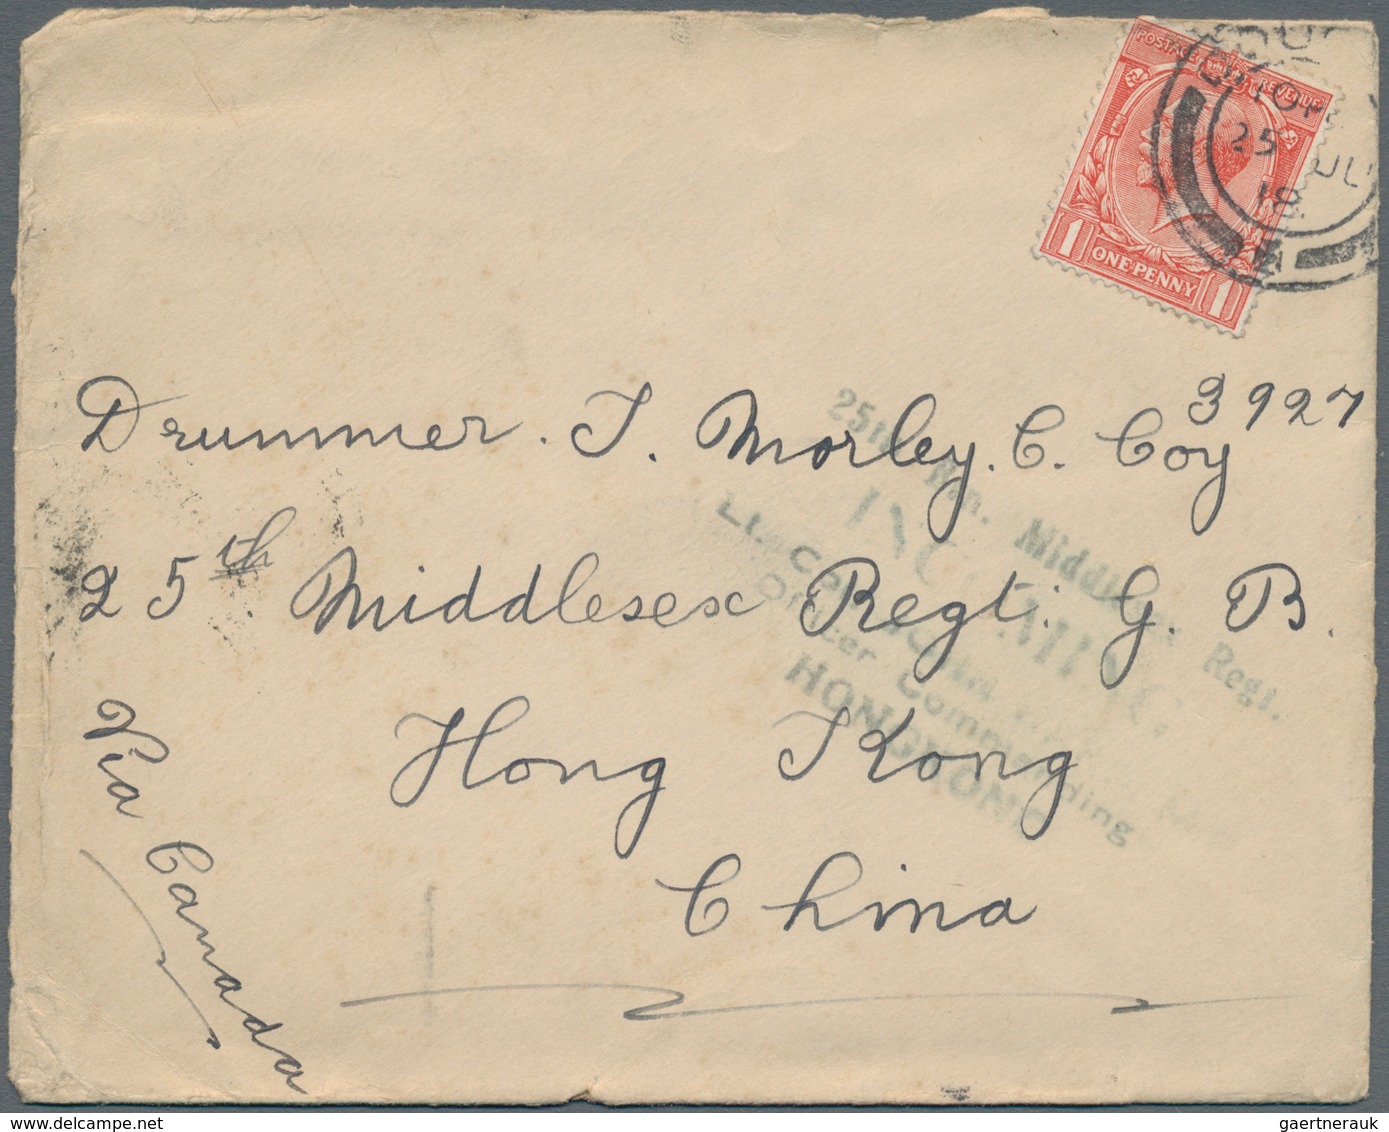 POSTAGE REVENUE
1 ONE PENNY 1
25 JUL
18
Drummer. J. Morley. C. Coy 3927
25th Middlesex Regt. G. B.
Hong Kong
China
Via Canada
25th Bn. Middlesex Regt.
INCOMING
Officer Commanding
HONGKONG
gaertnerauk